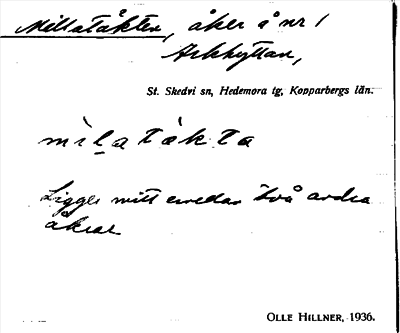 Millatäkten, åker å nr 1
Arkhyttan,
St. Skedvi sn, Hedemora tg, Kopparbergs län.
mìlatàkta
Ligger mitt emellan två andra
åkrar
OLLE HILLNER, 1936.